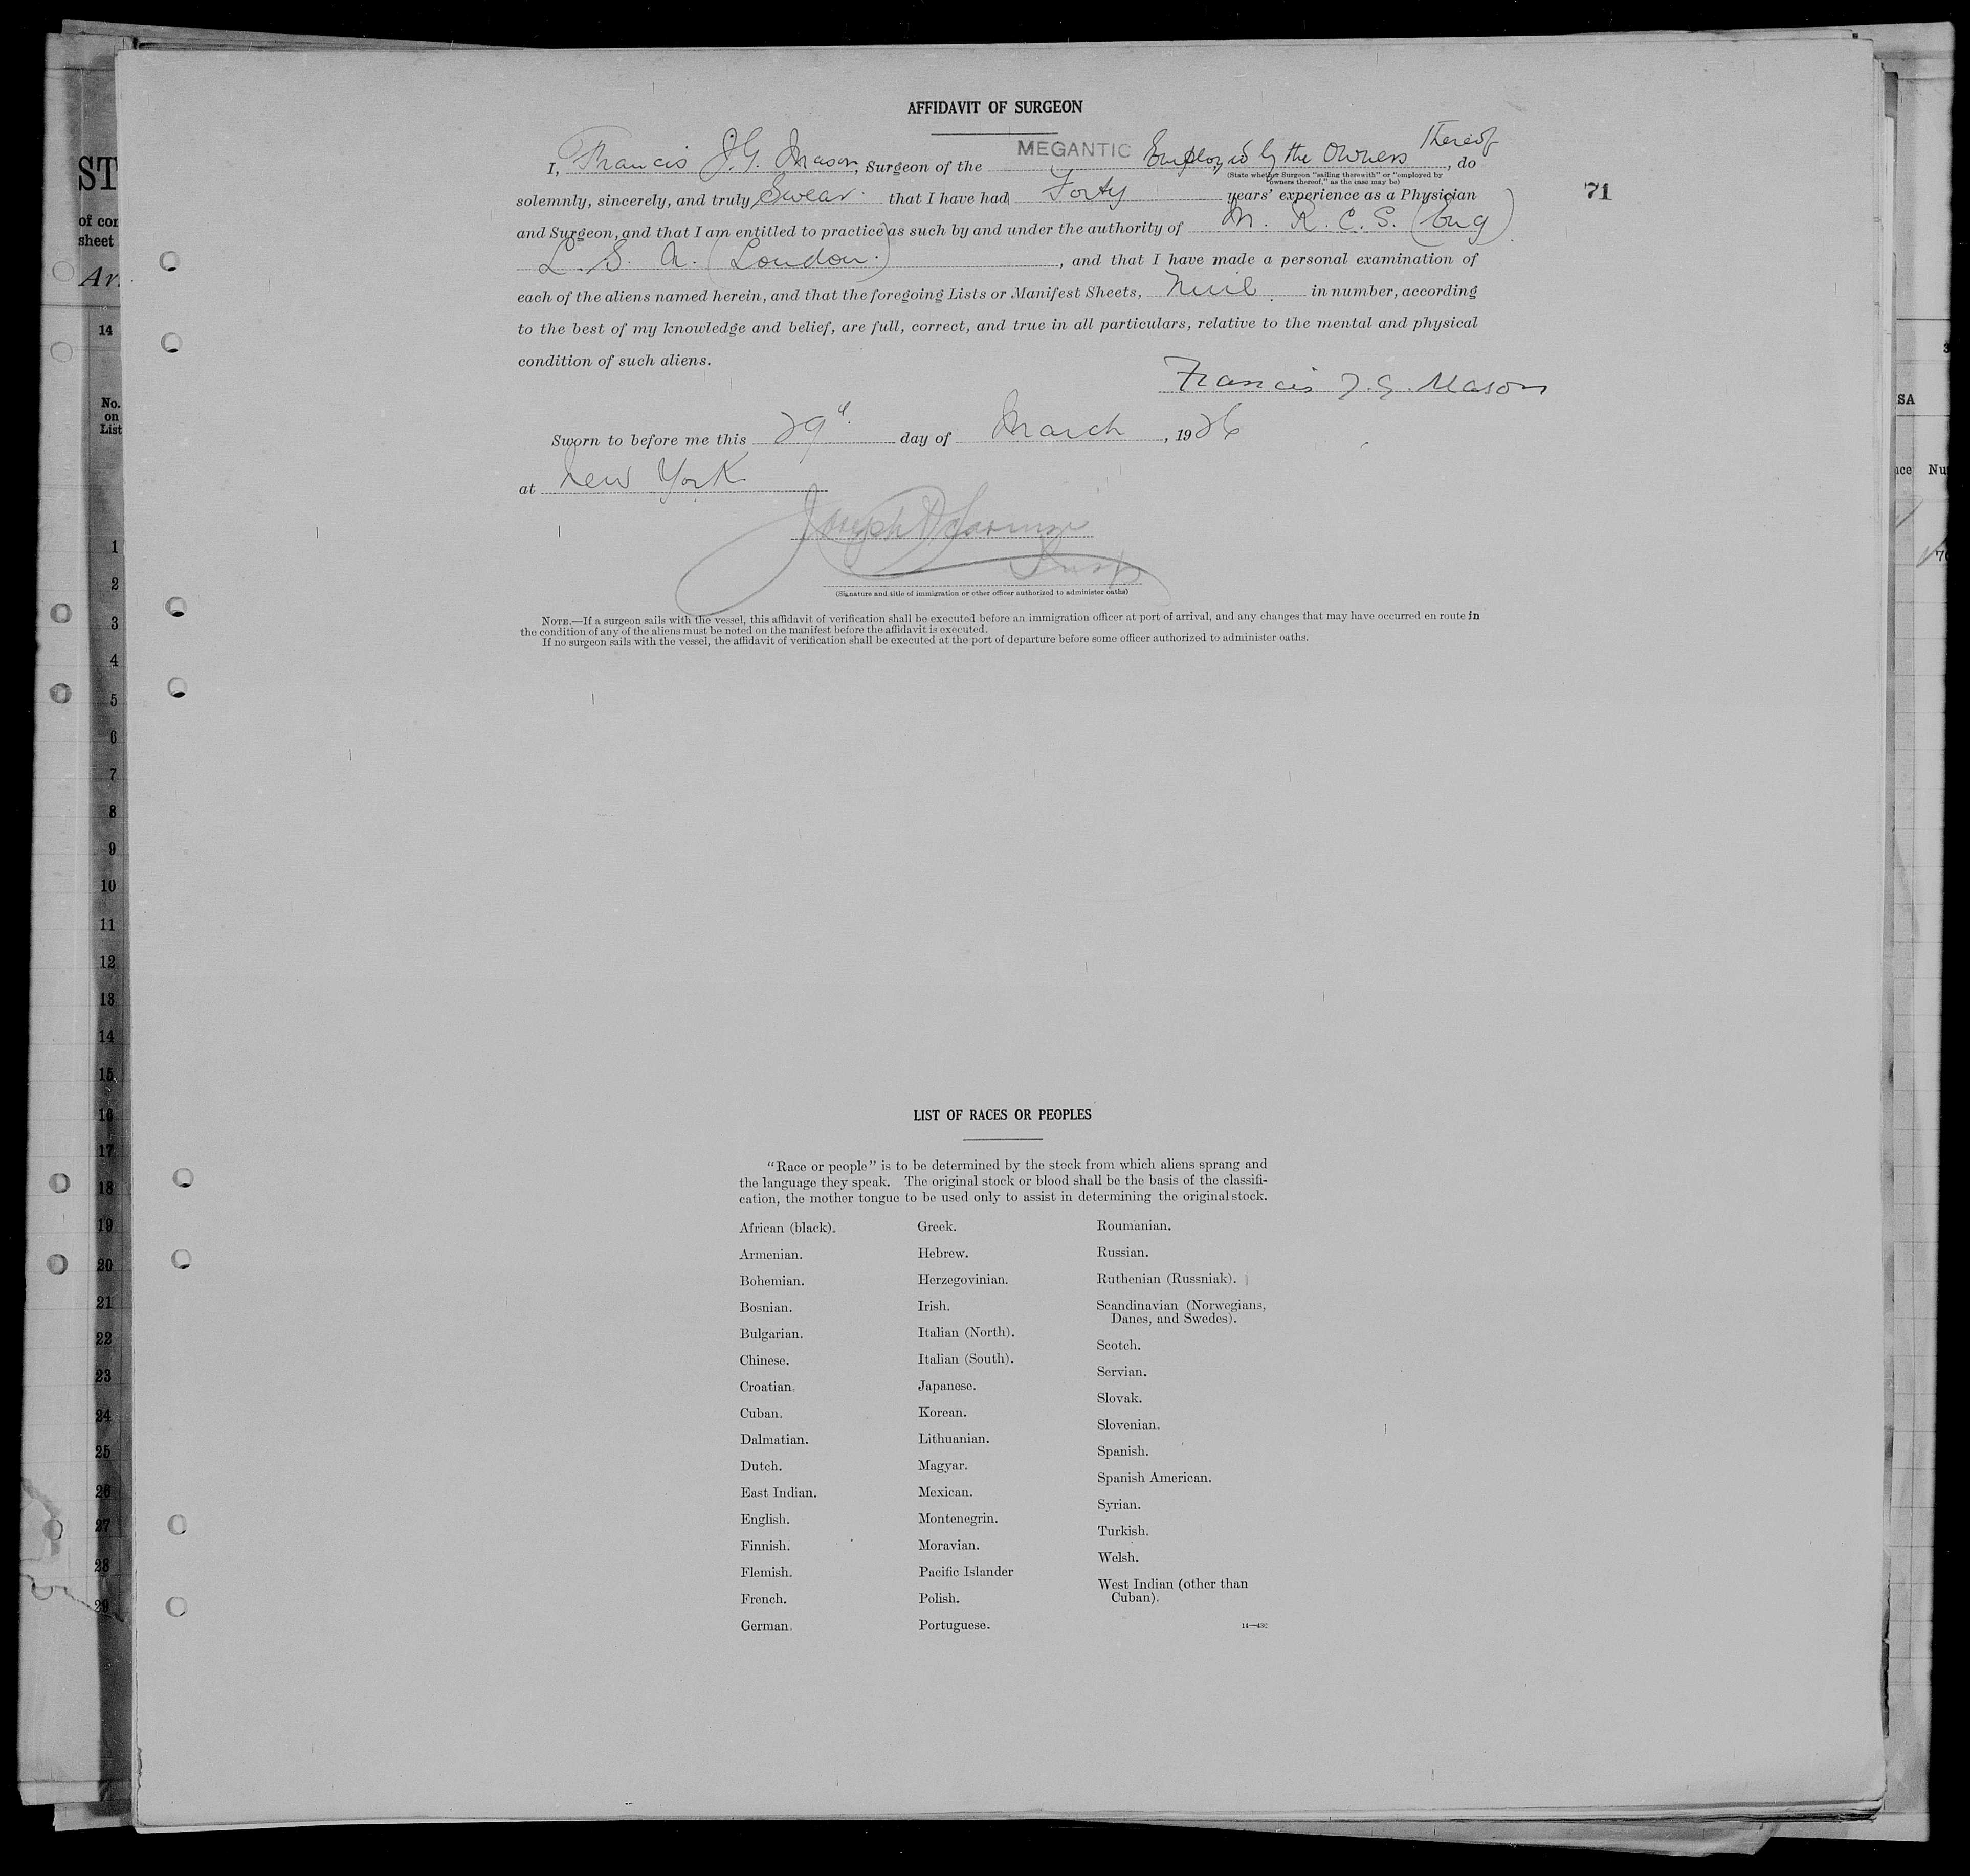 AFFIDAVIT OF SURGEON
I, Francis J. G. Mason, Surgeon of the MEGANTIC Employed by the Owners Thereof, do
(State whether Surgeon "sailing therewith" or "employed by
owners thereof," as the case may be)
solemnly, sincerely, and truly Swear that I have had Forty years' experience as a Physician
71
and Surgeon, and that I am entitled to practice as such by and under the authority of M. R. C. S. (Eng)
L. S. A. (London.), and that I have made a personal examination of
each of the aliens named herein, and that the foregoing Lists or Manifest Sheets, in number, according
to the best of my knowledge and belief, are full, correct, and true in all particulars, relative to the mental and physical
condition of such aliens.
Francis J. G. Mason
Sworn to before me this 29th day of March, 1926
at New York
Joseph
Insp
(Signature and title of immigration or other officer authorized to administer oaths)
NOTE.—If a surgeon sails with the vessel, this affidavit of verification shall be executed before an immigration officer at port of arrival, and any changes that may have occurred en route in
the condition of any of the aliens must be noted on the manifest before the affidavit is executed.
If no surgeon sails with the vessel, the affidavit of verification shall be executed at the port of departure before some officer authorized to administer oaths.
LIST OF RACES OR PEOPLES
"Race or people" is to be determined by the stock from which aliens sprang and
the language they speak. The original stock or blood shall be the basis of the classifi-
cation, the mother tongue to be used only to assist in determining the original stock.
African (black).
Armenian.
Bohemian.
Bosnian.
Bulgarian.
Chinese.
Croatian.
Cuban.
Dalmatian.
Dutch.
East Indian.
English.
Finnish.
Flemish.
French.
German.
Greek.
Hebrew.
Herzegovinian.
Irish.
Italian (North).
Italian (South).
Japanese.
Korean.
Lithuanian.
Magyar.
Mexican.
Montenegrin.
Moravian.
Pacific Islander
Polish.
Portuguese.
Roumanian.
Russian.
Ruthenian (Russniak).
Scandinavian (Norwegians,
Danes, and Swedes).
Scotch.
Servian.
Slovak.
Slovenian.
Spanish.
Spanish American.
Syrian.
Turkish.
Welsh.
West Indian (other than
Cuban).
ST
of con
sheet
Ar
14
No.
on
List
1
2
3
4
5
6
7
8
9
10
11
12
13
14
15
16
17
18
19
20
21
22
23
24
25
26
27
28
29
SA